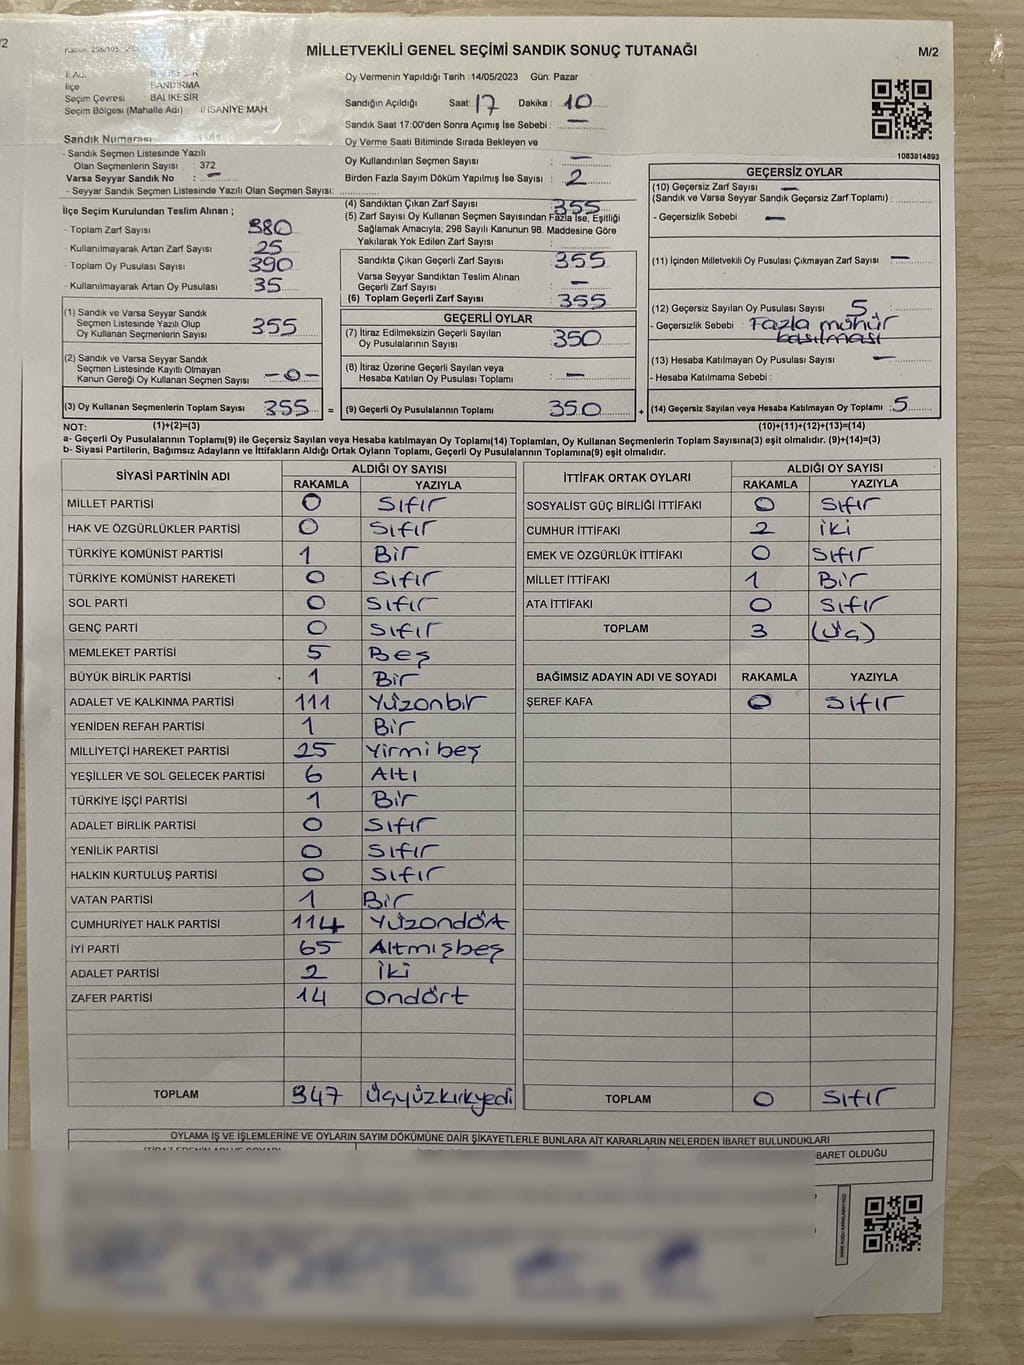 MİLLETVEKİLİ GENEL SEÇİMİ SANDIK SONUÇ TUTANAĞI
M/2
İl Adı BALIKESİR
İlçe BANDIRMA
Seçim Çevresi BALIKESİR
Seçim Bölgesi (Mahalle Adı) İHSANİYE MAH.
Sandık Numarası
- Sandık Seçmen Listesinde Yazılı
Olan Seçmenlerin Sayısı : 372
Varsa Seyyar Sandık No : –
- Seyyar Sandık Seçmen Listesinde Yazılı Olan Seçmen Sayısı:
Oy Vermenin Yapıldığı Tarih :14/05/2023 Gün: Pazar
Sandığın Açıldığı Saat: 17 Dakika : 10
Sandık Saat 17:00'den Sonra Açımış İse Sebebi : –
Oy Verme Saati Bitiminde Sırada Bekleyen ve
Oy Kullandırılan Seçmen Sayısı : –
Birden Fazla Sayım Döküm Yapılmış İse Sayısı : 2
1083814893
İlçe Seçim Kurulundan Teslim Alınan ;
- Toplam Zarf Sayısı 380
- Kullanılmayarak Artan Zarf Sayısı 25
- Toplam Oy Pusulası Sayısı 390
- Kullanılmayarak Artan Oy Pusulası 35
(1) Sandık ve Varsa Seyyar Sandık
Seçmen Listesinde Yazılı Olup
Oy Kullanan Seçmenlerin Sayısı 355
(2) Sandık ve Varsa Seyyar Sandık
Seçmen Listesinde Kayıtlı Olmayan
Kanun Gereği Oy Kullanan Seçmen Sayısı -0-
(3) Oy Kullanan Seçmenlerin Toplam Sayısı 355 =
(4) Sandıktan Çıkan Zarf Sayısı 355
(5) Zarf Sayısı Oy Kullanan Seçmen Sayısından Fazla İse, Eşitliği
Sağlamak Amacıyla; 298 Sayılı Kanunun 98. Maddesine Göre
Yakılarak Yok Edilen Zarf Sayısı :
Sandıkta Çıkan Geçerli Zarf Sayısı : 355
Varsa Seyyar Sandıktan Teslim Alınan
Geçerli Zarf Sayısı : –
(6) Toplam Geçerli Zarf Sayısı : 355
GEÇERLİ OYLAR
(7) İtiraz Edilmeksizin Geçerli Sayılan
Oy Pusulalarının Sayısı : 350
(8) İtiraz Üzerine Geçerli Sayılan veya
Hesaba Katılan Oy Pusulası Toplamı : –
(9) Geçerli Oy Pusulalarının Toplamı 350 +
GEÇERSİZ OYLAR
(10) Geçersiz Zarf Sayısı –
(Sandık ve Varsa Seyyar Sandık Geçersiz Zarf Toplamı) :
- Geçersizlik Sebebi : –
(11) İçinden Milletvekili Oy Pusulası Çıkmayan Zarf Sayısı : –
(12) Geçersiz Sayılan Oy Pusulası Sayısı : 5
- Geçersizlik Sebebi : Fazla mühür
basılması
(13) Hesaba Katılmayan Oy Pusulası Sayısı : –
- Hesaba Katılmama Sebebi :
(14) Geçersiz Sayılan veya Hesaba Katılmayan Oy Toplamı : 5
NOT: (1)+(2)=(3) (10)+(11)+(12)+(13)=(14)
a- Geçerli Oy Pusulalarının Toplamı(9) ile Geçersiz Sayılan veya Hesaba katılmayan Oy Toplamı(14) Toplamları, Oy Kullanan Seçmenlerin Toplam Sayısına(3) eşit olmalıdır. (9)+(14)=(3)
b- Siyasi Partilerin, Bağımsız Adayların ve İttifakların Aldığı Ortak Oyların Toplamı, Geçerli Oy Pusulalarının Toplamına(9) eşit olmalıdır.
SİYASİ PARTİNİN ADI ALDIĞI OY SAYISI
RAKAMLA YAZIYLA
MİLLET PARTİSİ 0 Sıfır
HAK VE ÖZGÜRLÜKLER PARTİSİ 0 Sıfır
TÜRKİYE KOMÜNİST PARTİSİ 1 Bir
TÜRKİYE KOMÜNİST HAREKETİ 0 Sıfır
SOL PARTİ 0 Sıfır
GENÇ PARTİ 0 Sıfır
MEMLEKET PARTİSİ 5 Beş
BÜYÜK BİRLİK PARTİSİ 1 Bir
ADALET VE KALKINMA PARTİSİ 111 Yüzonbir
YENİDEN REFAH PARTİSİ 1 Bir
MİLLİYETÇİ HAREKET PARTİSİ 25 Yirmibeş
YEŞİLLER VE SOL GELECEK PARTİSİ 6 Altı
TÜRKİYE İŞÇİ PARTİSİ 1 Bir
ADALET BİRLİK PARTİSİ 0 Sıfır
YENİLİK PARTİSİ 0 Sıfır
HALKIN KURTULUŞ PARTİSİ 0 Sıfır
VATAN PARTİSİ 1 Bir
CUMHURİYET HALK PARTİSİ 114 Yüzondört
İYİ PARTİ 65 Altmışbeş
ADALET PARTİSİ 2 İki
ZAFER PARTİSİ 14 Ondört
TOPLAM 347 Üçyüzkırkyedi
İTTİFAK ORTAK OYLARI ALDIĞI OY SAYISI
RAKAMLA YAZIYLA
SOSYALİST GÜÇ BİRLİĞİ İTTİFAKI 0 Sıfır
CUMHUR İTTİFAKI 2 İki
EMEK VE ÖZGÜRLÜK İTTİFAKI 0 Sıfır
MİLLET İTTİFAKI 1 Bir
ATA İTTİFAKI 0 Sıfır
TOPLAM 3 (Üç)
BAĞIMSIZ ADAYIN ADI VE SOYADI RAKAMLA YAZIYLA
ŞEREF KAFA 0 Sıfır
TOPLAM 0 Sıfır
OYLAMA İŞ VE İŞLEMLERİNE VE OYLARIN SAYIM DÖKÜMÜNE DAİR ŞİKAYETLERLE BUNLARA AİT KARARLARIN NELERDEN İBARET BULUNDUKLARI
BARET OLDUĞU